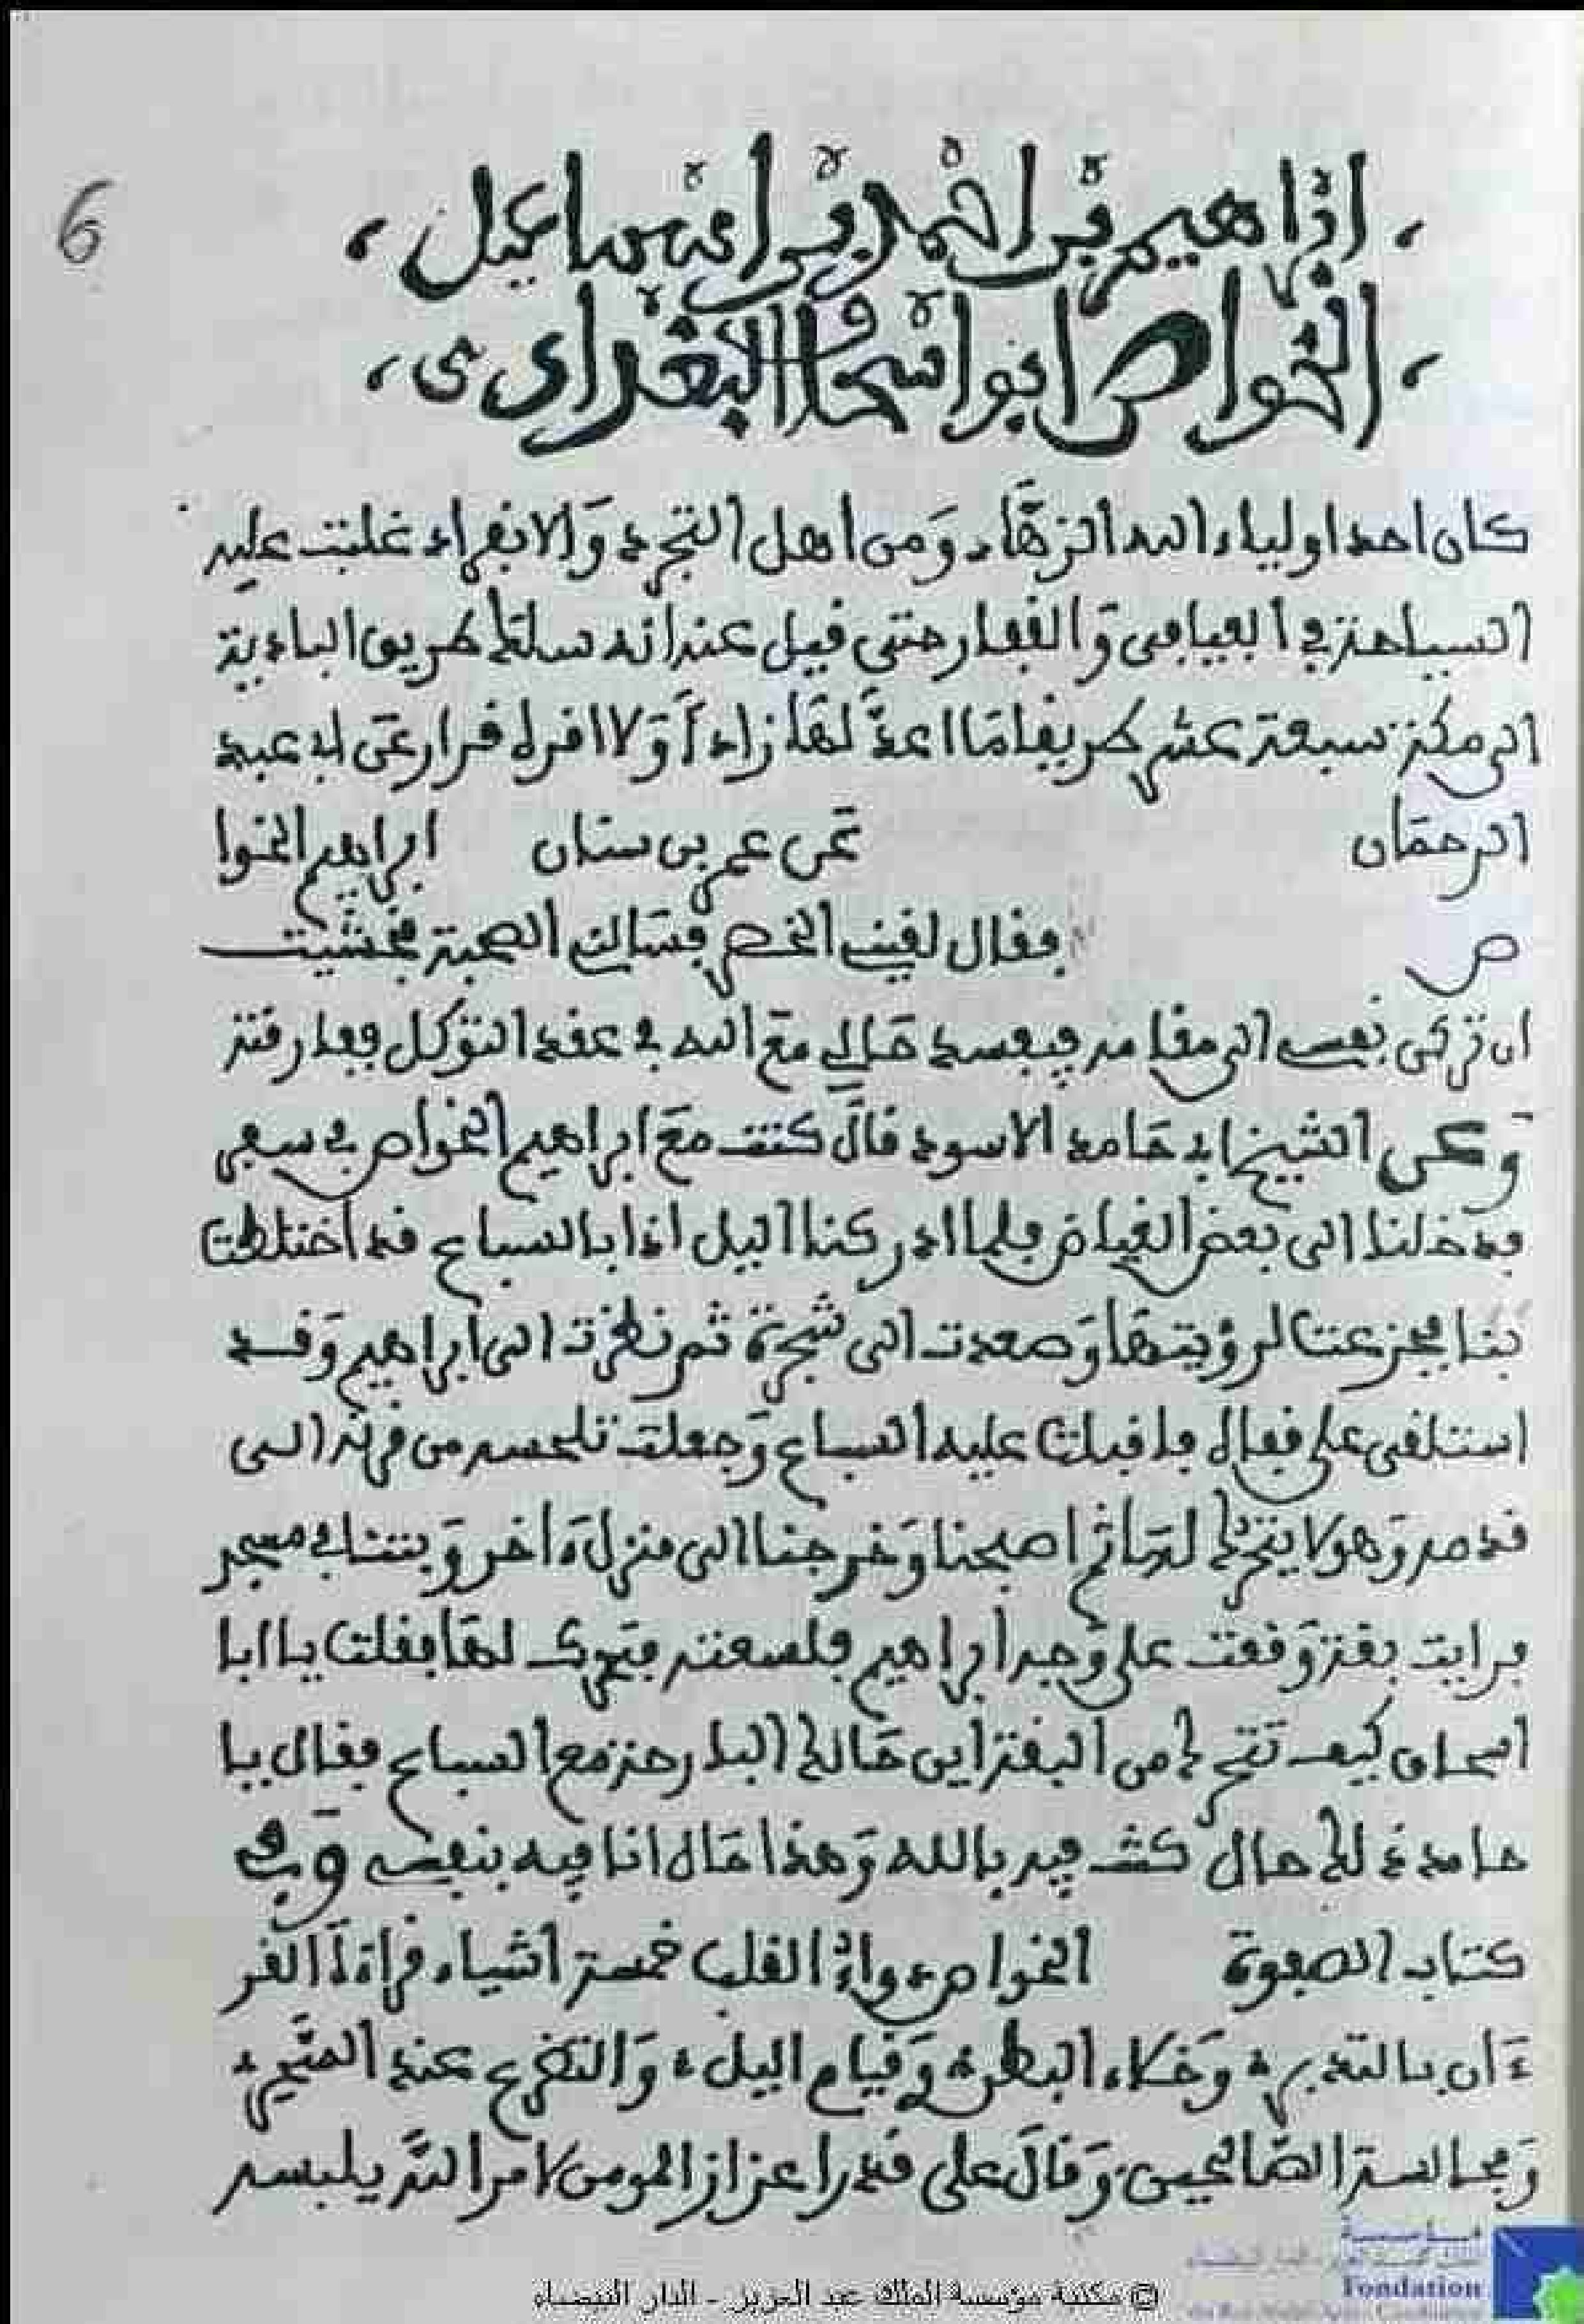 6
إبراهيم بن أحمد بن إسماعيل
الخواص أبو إسحاق البغدادي
كان احد اولياء الله الزهاد ومن اهل التجريد والانفراد غلبت عليه
السياحة في الفيافي والقفار حتى قيل عنه انه سلك طريق البادية
الى مكة سبعة عشر طريقا ما اعد لها زادا ولا افرد قرارا عن ابي عبد
الرحمان عن عمر بن سنان ابراهيم الخوا
ص فقال لقيني الخضر فسألني الصحبة فخشيت
ان تركن نفسي الى مقامه فيفسد حالي مع الله في عقد التوكل ففارقته
وحكى الشيخ ابي حامد الاسود قال كنت مع ابراهيم الخواص في سفر
فدخلنا الى بعض الغياض فلما ادركنا اليل اذا بالسباع قد اختلطت
بنا فجزعت لرؤيتها وصعدت الى شجرة ثم نظرت الى ابراهيم وقد
استلقى على قفاه فاقبلت عليه السباع وجعلت تلحسه من قرنه الى
قدمه وهو لا يتحرك لها ثم اصبحنا وخرجنا الى منزل ءاخر وبتنا في مسجد
فرايت بقة وقعت على وجه ابراهيم فلسعته فتحرك لها فقلت يا ابا
اسحاق كيف تتحرك من البقة اين حالك البارحة مع السباع فقال يا
حامد ذلك حال كنت فيه بالله وهذا حال انا فيه بنفسي وفي
كتاب الصفوة الخواص دواء القلب خمسة أشياء قراءة القر
ءان بالتدبر وخلاء البطن وقيام اليل والتضرع عند السحر
ومجالسة الصالحين وقال على قدر اعزاز المومن لامر الله يلبسه
مؤسسة
Fondation
© مكتبة مؤسسة الملك عبد العزيز - الدار البيضاء